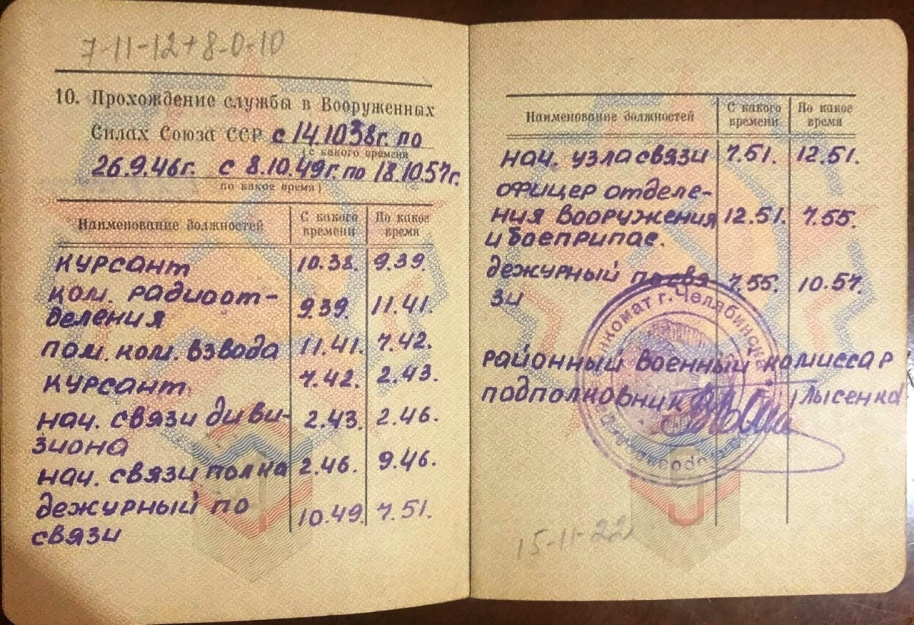 7-11-12+8-0-10
10. Прохождение службы в Вооруженных
Силах Союза ССР с 14.10.38г. по
(с какого времени
26.9.46г. с 8.10.49г. по 18.10.57г.
по какое время)
Наименование должностей С какого времени По какое время
курсант 10.38. 9.39.
ком. радиоот-
деления 9.39. 11.41.
пом. ком. взвода 11.41. 7.42.
курсант 7.42. 2.43.
нач. связи диви-
зиона 2.43. 2.46.
нач. связи полка 2.46. 9.46.
дежурный по
связи 10.49. 7.51.
Наименование должностей С какого времени По какое время
нач. узла связи 7.51. 12.51.
офицер отделе-
ния вооружения 12.51. 7.55.
и боеприпас.
дежурный по свя 7.55. 10.57.
зи
районный военный комиссар
подполковник /Лысенко/
г. Челябинска
15-11-22